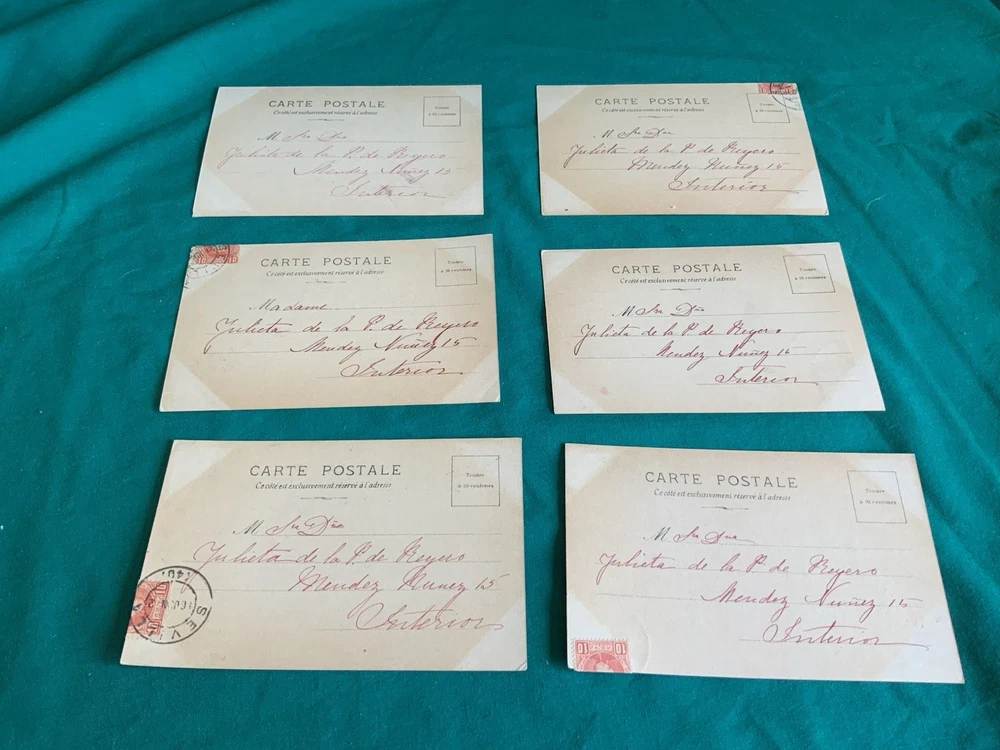 CARTE POSTALE
Ce côté est exclusivement réservé à l'adresse
Timbre
à 10 centimes
M Sra Dña
Julieta de la P. de Reyero
Mendez Nuñez 15
Interior
10 10
CARTE POSTALE
Ce côté est exclusivement réservé à l'adresse
Timbre
à 10 centimes
M Sra Dña
Julieta de la P. de Reyero
Mendez Nuñez 15
Interior
10 10
CARTE POSTALE
Ce côté est exclusivement réservé à l'adresse
Timbre
à 10 centimes
Madame
Julieta de la P. de Reyero
Mendez Nuñez 15
Interior
CARTE POSTALE
Ce côté est exclusivement réservé à l'adresse
Timbre
à 10 centimes
M Sra Dña
Julieta de la P. de Reyero
Mendez Nuñez 15
Interior
CARTE POSTALE
Ce côté est exclusivement réservé à l'adresse
Timbre
à 10 centimes
M Sra Dña
Julieta de la P. de Reyero
Mendez Nunez 15
Interior
10
CARTE POSTALE
Ce côté est exclusivement réservé à l'adresse
Timbre
à 10 centimes
M Sra Dña
Julieta de la P. de Reyero
Mendez Nuñez 15
Interior
10 CENTS 10